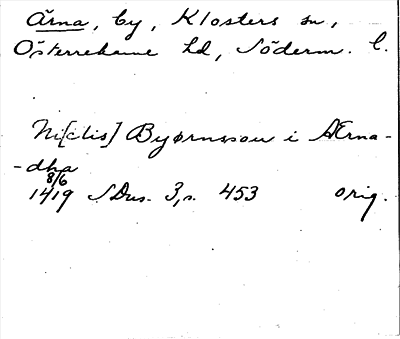 Ärna, by, Klosters sn,
Österrekarne hd, Söderm. l.
Ni[clis] Byørnsson i Ærna-
-dha
8/6
1419 SDns. 3, s. 453 orig.